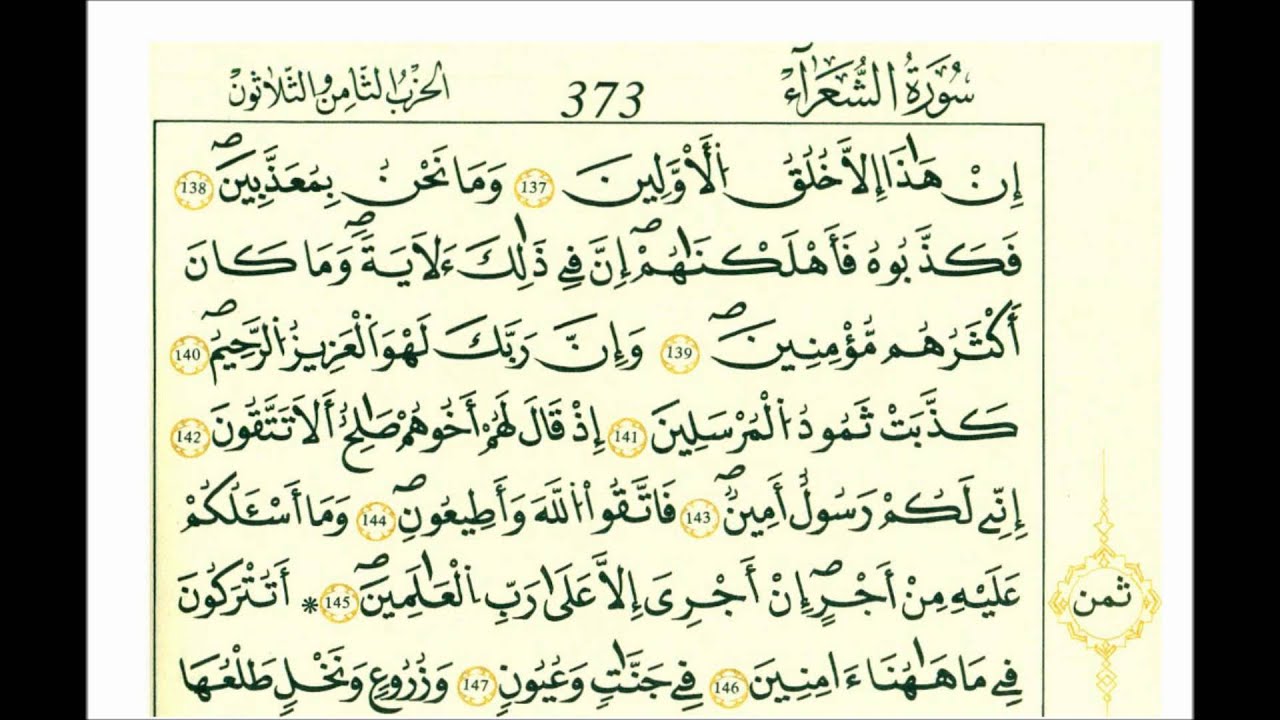 سُورَةُ الشُّعَرَآءِ 373 الحِزْبُ الثَّامِنُ وَالثَّلَاثُونَ
إِنْ هَٰذَا إِلاَّ خُلُقُ اُ۬لْأَوَّلِينَ 137 وَمَا نَحْنُ بِمُعَذَّبِينَۖ 138
فَكَذَّبُوهُ فَأَهْلَكْنَٰهُمْۖ إِنَّ فِي ذَٰلِكَ ءَلَايَةٗۖ وَمَا كَانَ
أَكْثَرُهُم مُّؤْمِنِينَۖ 139 وَإِنَّ رَبَّكَ لَهْوَ اَ۬لْعَزِيزُ اُ۬لرَّحِيمُۖ 140
كَذَّبَتْ ثَمُودُ اُ۬لْمُرْسَلِينَ 141 إِذْ قَالَ لَهُمْ أَخُوهُمْ صَٰلِحٌ أَلَا تَتَّقُونَ 142
إِنِّي لَكُمْ رَسُولٌ أَمِينٞۖ 143 فَاتَّقُواْ اُ۬للَّهَ وَأَطِيعُونِۖ 144 وَمَا أَسْـَٔلُكُمْ
عَلَيْهِ مِنْ أَجْرٍۖ إِنْ أَجْرِيَ إِلاَّ عَلَىٰ رَبِّ اِ۬لْعَٰلَمِينَۖ 145 * أَتُتْرَكُونَ
ثمن
فِي مَا هَٰهُنَا ءَامِنِينَ 146 فِي جَنَّٰتٖ وَعُيُونٖ 147 وَزُرُوعٖ وَنَخْلٖ طَلْعُهَا